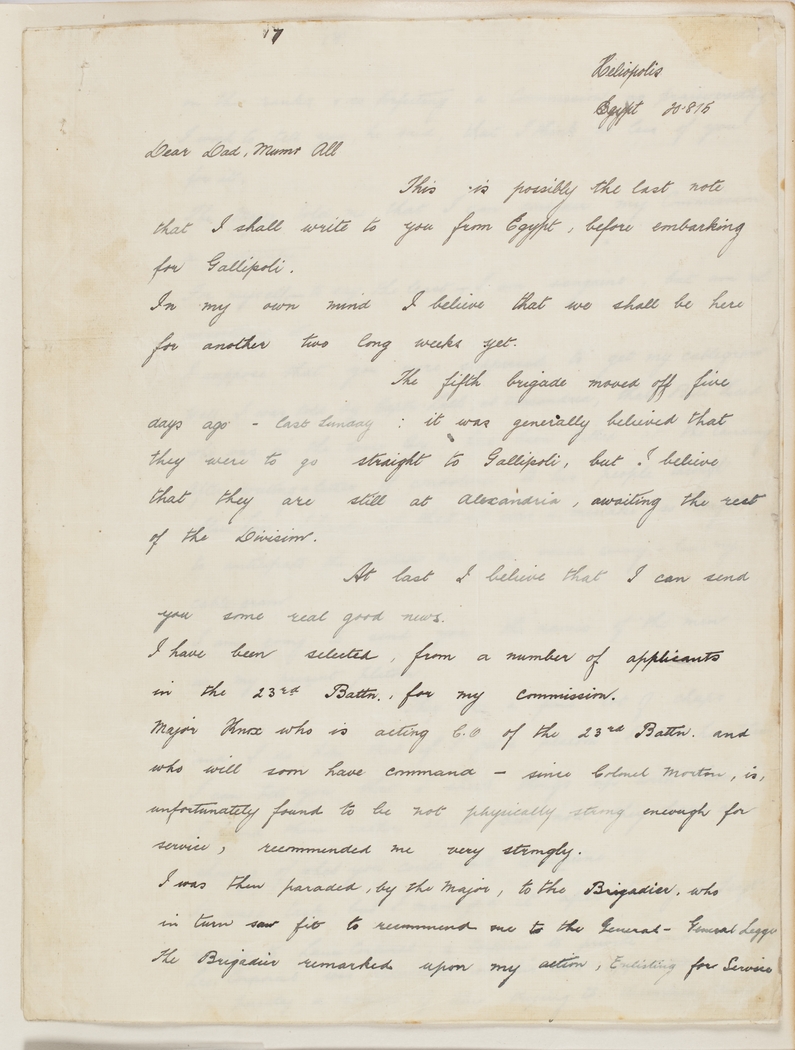 17
Heliopolis
Egypt 20.8.15
Dear Dad, Mum & All
This is possibly the last note
that I shall write to you from Egypt, before embarking
for Gallipoli.
In my own mind I believe that we shall be here
for another two long weeks yet.
The fifth brigade moved off five
days ago - last Sunday : it was generally believed that
they were to go straight to Gallipoli, but I believe
that they are still at Alexandria, awaiting the rest
of the Division.
At last I believe that I can send
you some real good news.
I have been selected, from a number of applicants
in the 23rd Battn., for my commission.
Major Knox who is acting C.O of the 23rd Battn. and
who will soon have command - since Colonel Morton, is,
unfortunately found to be not physically strong enough for
service, recommended me very strongly.
I was then paraded, by the Major, to the Brigadier, who
in turn saw fit to recommend me to the General - General Legge
The Brigadier remarked upon my action, Enlisting for Service